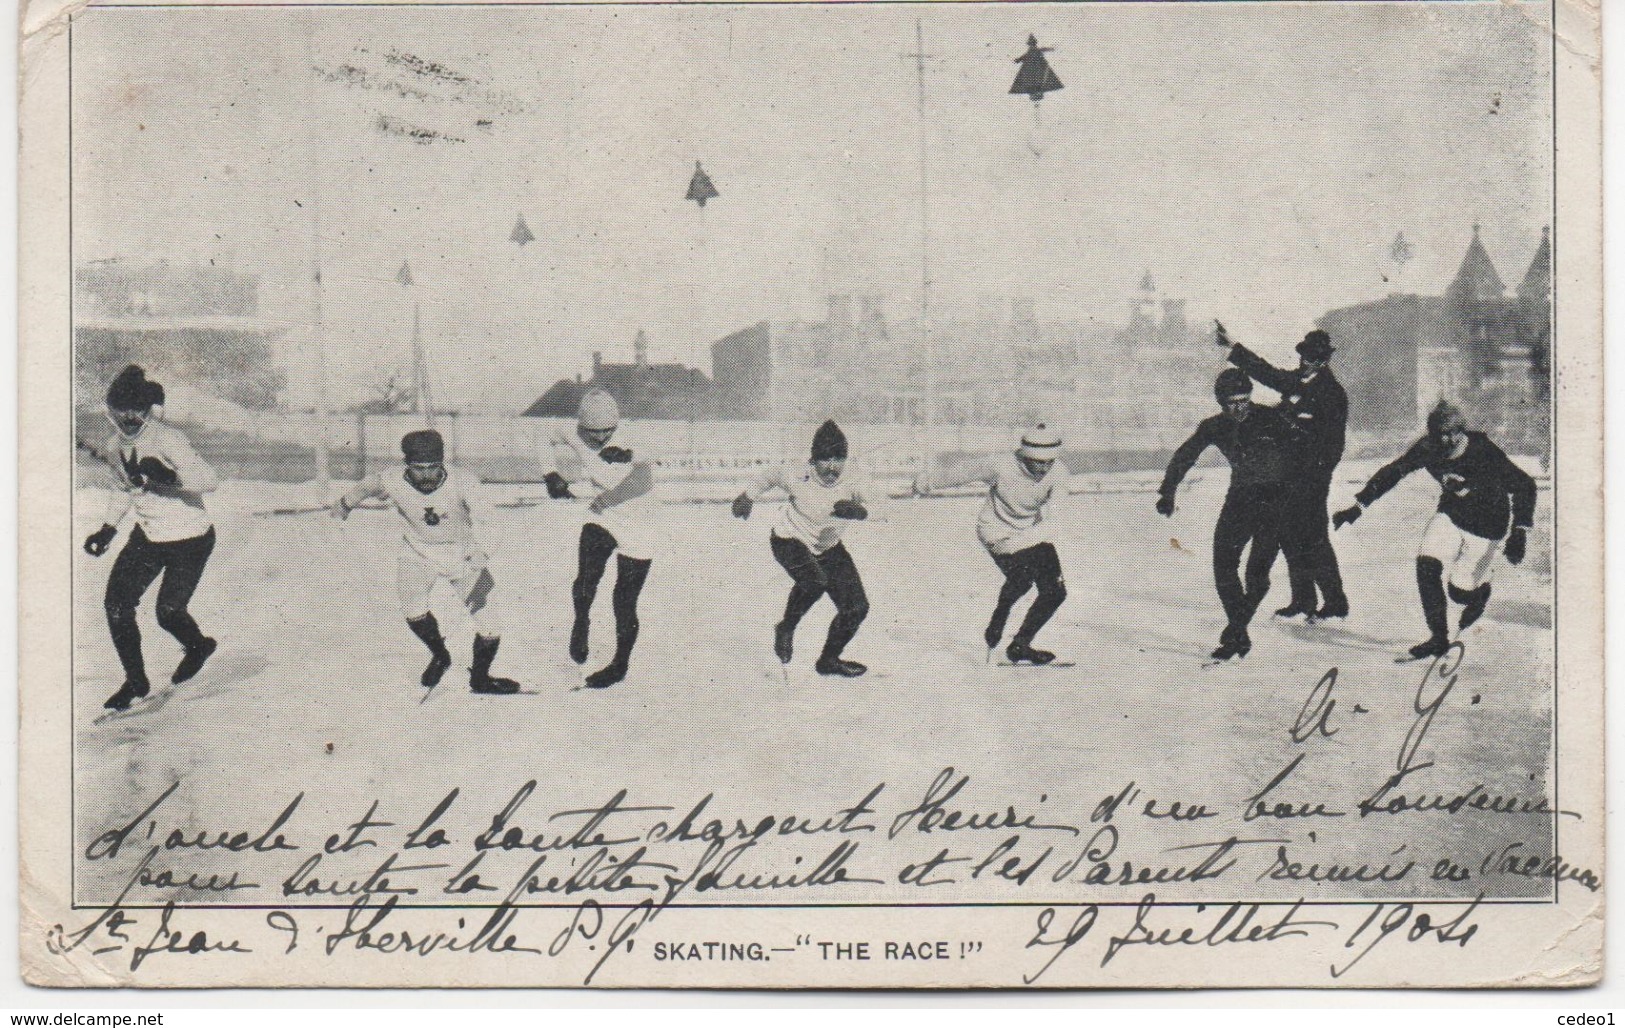 A. G.
d'oncle et la tante chargent Henri d'un bon souvenir
pour toute la petite famille et les Parents réunis en vacances
St Jean d'Iberville P. Q. 29 Juillet 1904
SKATING.—"THE RACE!"
www.delcampe.net
cedeo1